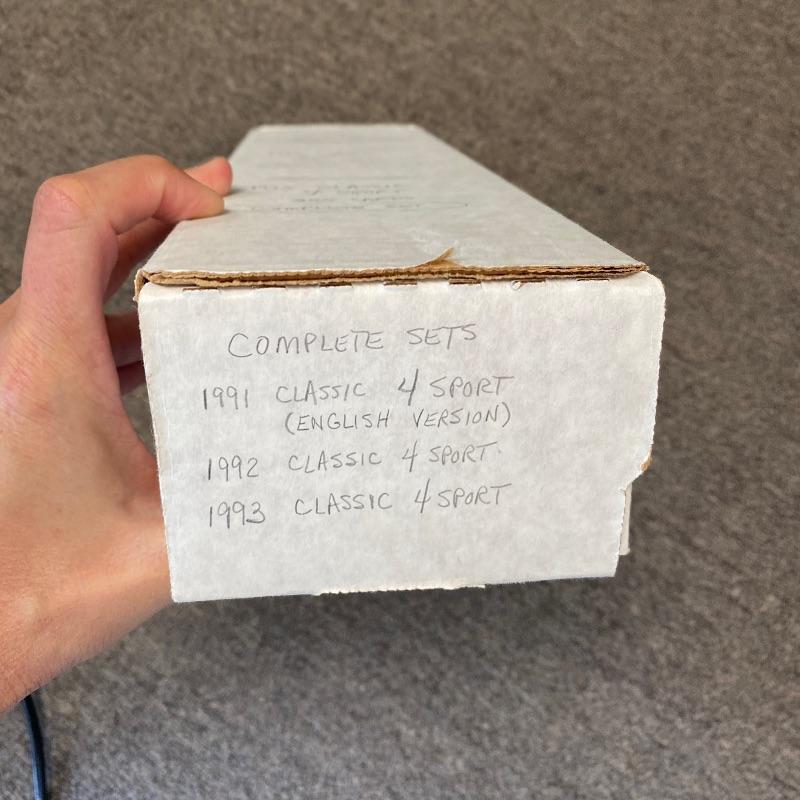 COMPLETE SETS
1991 CLASSIC 4 SPORT
(ENGLISH VERSION)
1992 CLASSIC 4 SPORT
1993 CLASSIC 4 SPORT